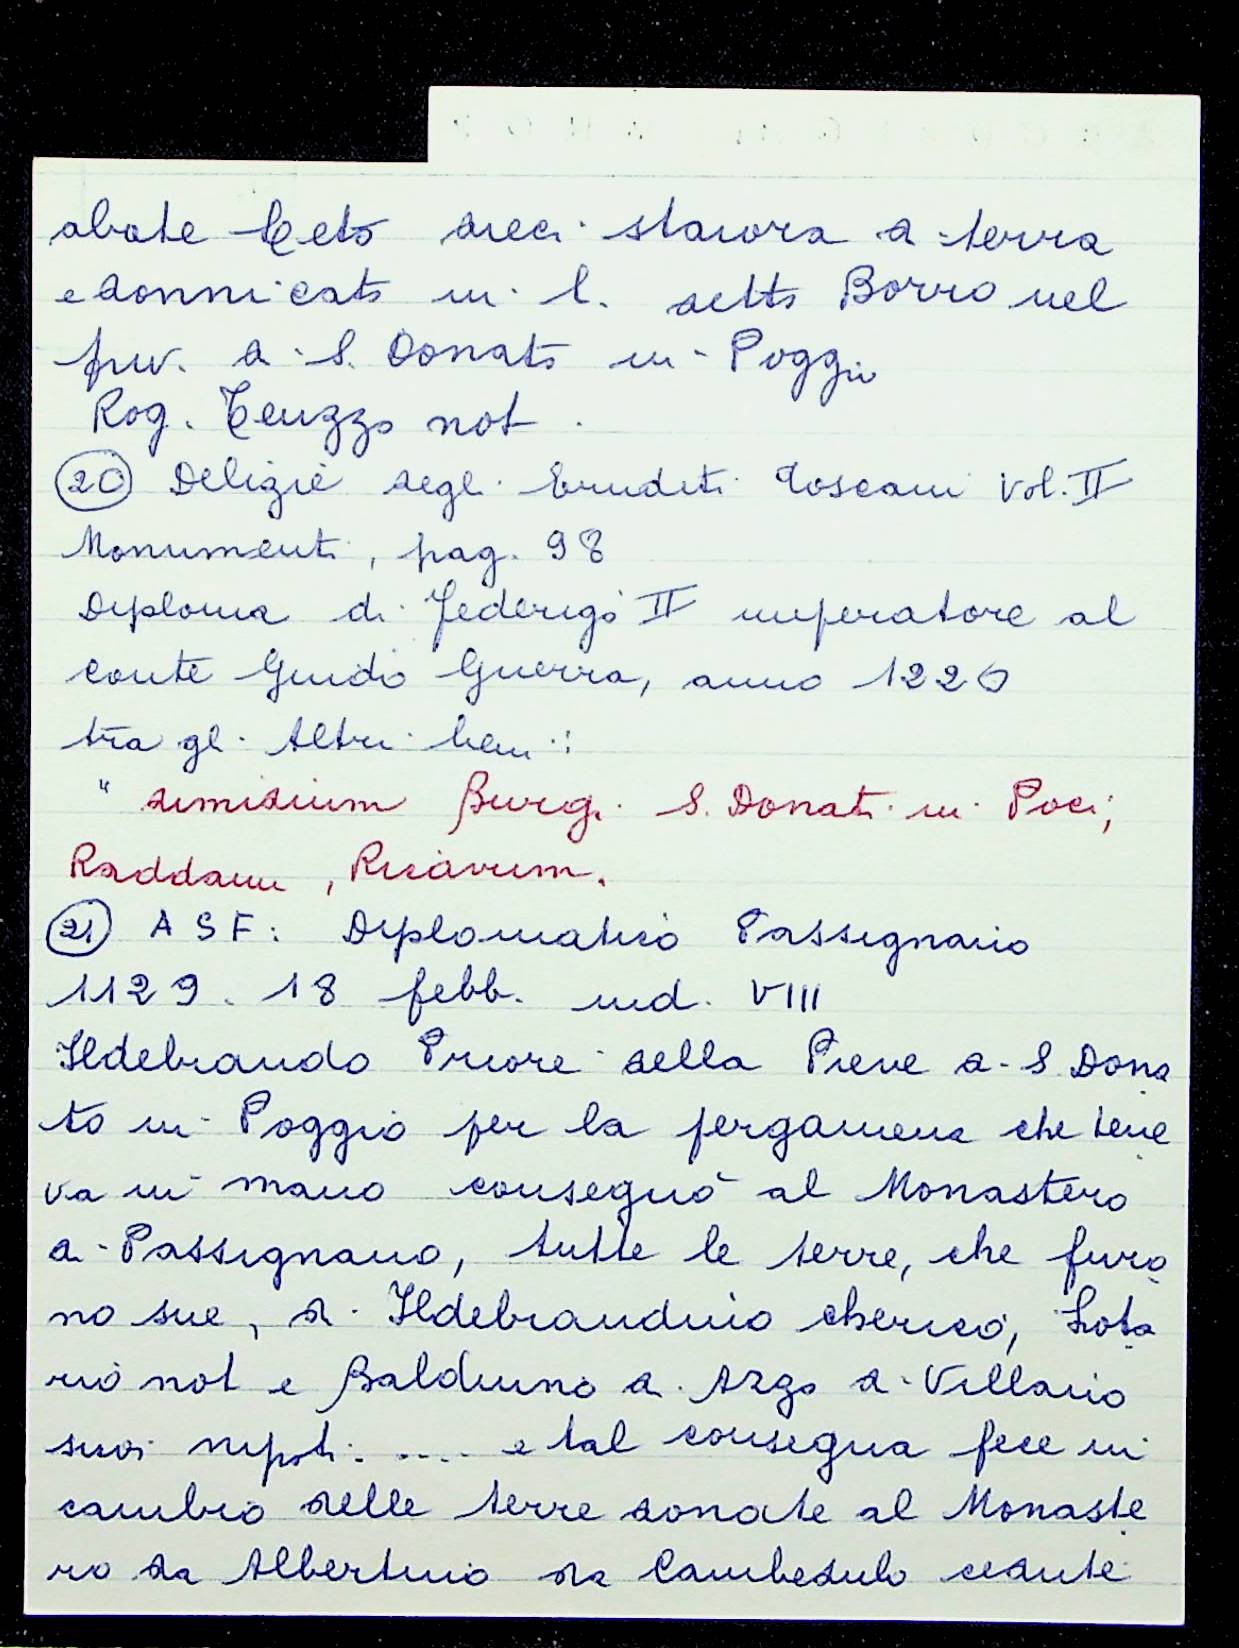 abate Teto dieci staiora di terra
e donnicato in l. detto Borro nel
piv. di S. Donato in Poggio
Rog. Teuzzo not.
(20) Delizie degli Eruditi Toscani Vol. II
Monumenti, pag. 98
Diploma di Federigo II imperatore al
conte Guido Guerra, anno 1220
tra gli altri beni:
" dimidium Burgi S. Donati in Poci,
Raddam, Ricavum.
(21) ASF: Diplomatico Passignano
1129. 18 febb. ind. VIII
Ildebrando Priore della Pieve di S. Dona
to in Poggio per la pergamena che tene
va in mano consegnò al Monastero
di Passignano, tutte le terre, che furo
no sue, di Ildebrandino cherico, Lota
rio not e Balduino di Azzo di Villano
suoi nipoti .... e tal consegna fece in
cambio delle terre donate al Monaste
ro da Albertino da Cambedulo cedute